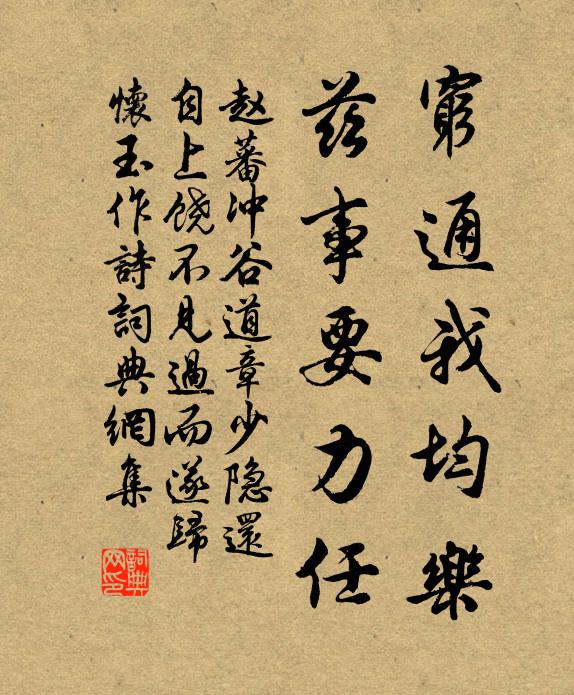 窮通我均樂
茲事要力任
赵蕃冲谷道章少隐還
自上饶不見過而遂歸
懷玉作詩詞典網集
詞典
网印